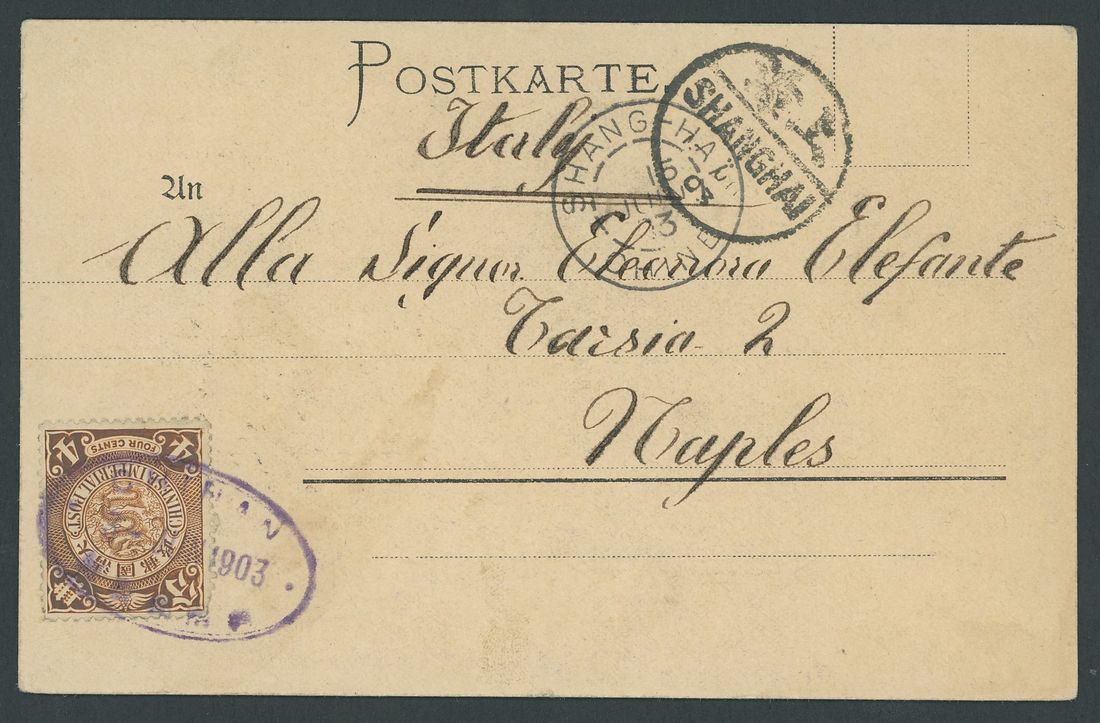 POSTKARTE.
Italy
SHANG-HAI
CHINE
15
JUIN
03
I.P.
SHANGHAI
An
Alla Signor. Eleonora Elefante
Tarsia 2
Naples
4 FOUR CENTS 4
CHINESE IMPERIAL POST
大清國郵政
1903